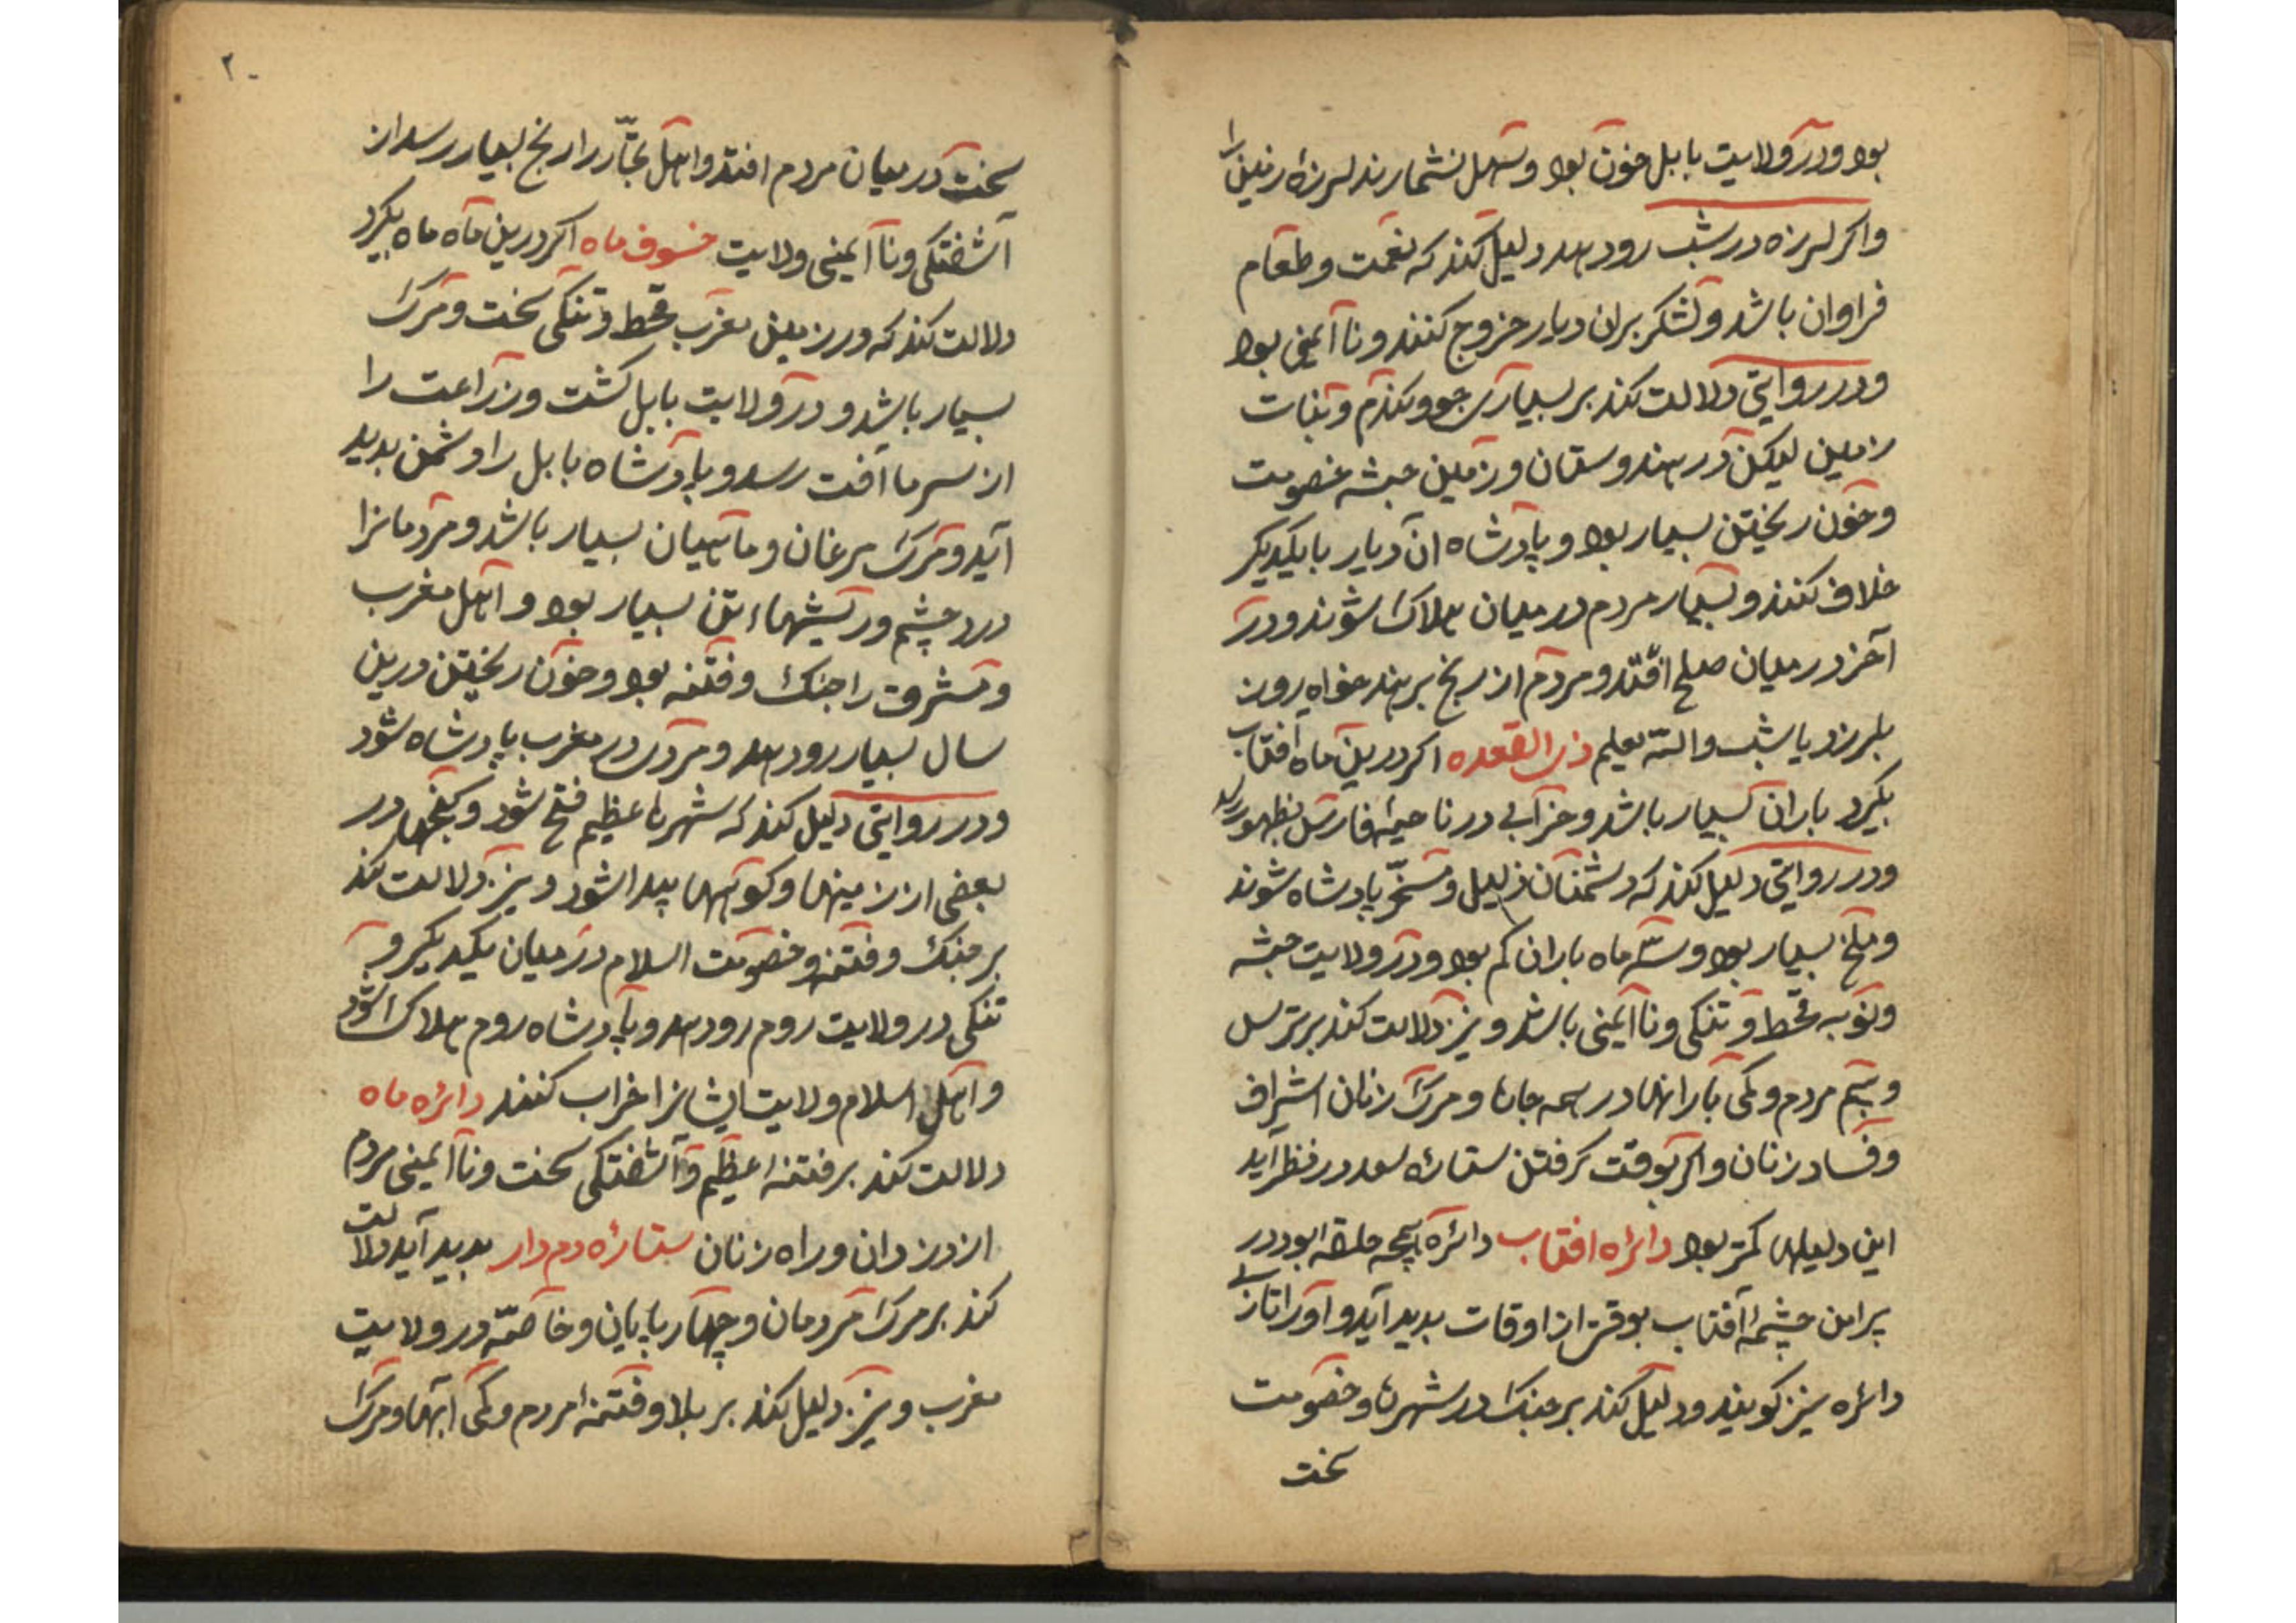 بود و در ولایت بابل خون بود و سهل نشمارند لرزۀ زمین را
و اکر لرزه در شب رو دهد دلیل کند که نعمت و طعام
فراوان باشد و لشکر بران دیار خروج کنند و نا ایمنی بود
و در روایتی دلالت کند بر بسیاری جو و کندم و نبات
زمین لیکن در هندوستان و زمین حبشه خصومت
و خون ریختن بسیار بود و پادشاه ان دیار با یکدیکر
خلاف کنند و بسیار مردم در میان هلاک شوند و در
آخر در میان صلح افتد و مردم از رنج برهند خواه روز
بلرزد یا شب والله یعلم ذی القعده اکر درین ماه افتاب
بکیرد باران بسیار باشد و خرابی در ناحیۀ فارس بظهور رسد
و در روایتی دلیل کند که دشمنان ذلیل و مسخر پادشاه شوند
و ملخ بسیار بود و سه ماه باران کم بود و در ولایت حبشه
و نوبه قحط و تنکی و نا ایمنی باشد و نیز دلالت کند بر ترس
و بیم مردم و کمی بارانها در همه جاها و مرک زنان اشراف
و فساد زنان و اکر بوقت کرفتن ستارۀ سعد در نظر آید
این دلیلها کمتر بود دائرۀ افتاب دائره آنچه حلقه بود در
پرامن چشمۀ آفتاب بوقتی از اوقات بدید آید و او را بتازی
دائره نیز کویند و دلیل کند بر جنک در شهرها و خصومت
سخت
۲۰
سخت در میان مردم افتد و اهل تجار را رنج بسیار رسد از
آشفتکی و نا ایمنی ولایت خسوف ماه اکر درین ماه ماه بکیرد
دلالت کند که در زمین مغرب قحط و تنکی سخت و مرک
بسیار باشد و در ولایت بابل کشت و زراعت را
از سرما آفت رسد و پادشاه بابل را دشمن بدید
آید و مرک مرغان و ماهیان بسیار باشد و مردمانرا
درد چشم و ریشهاء تن بسیار بود و اهل مغرب
و مشرق را جنک و فتنه بود و خون ریختن درین
سال بسیار رو دهد و مردی در مغرب پادشاه شود
و در روایتی دلیل کند که شهرها عظیم فتح شود و کنجها در
بعضی از زمینها و کوهها پیدا شود و نیز دلالت کند
بر جنک و فتنه و خصومت اسلام در میان یکدیکر و
تنکی در ولایت روم رو دهد و پادشاه روم هلاک شود
و اهل اسلام ولایت ایشانرا خراب کنند دائرۀ ماه
دلالت کند بر فتنۀ عظیم و آشفتکی سخت و نا ایمنی مردم
از دزدان و راه زنان ستارۀ دم دار بدید آید دلالت
کند بر مرک مردمان و چهار پایان و خاصه در ولایت
مغرب و نیز دلیل کند بر بلا و فتنۀ مردم و کمی ابها و مرک